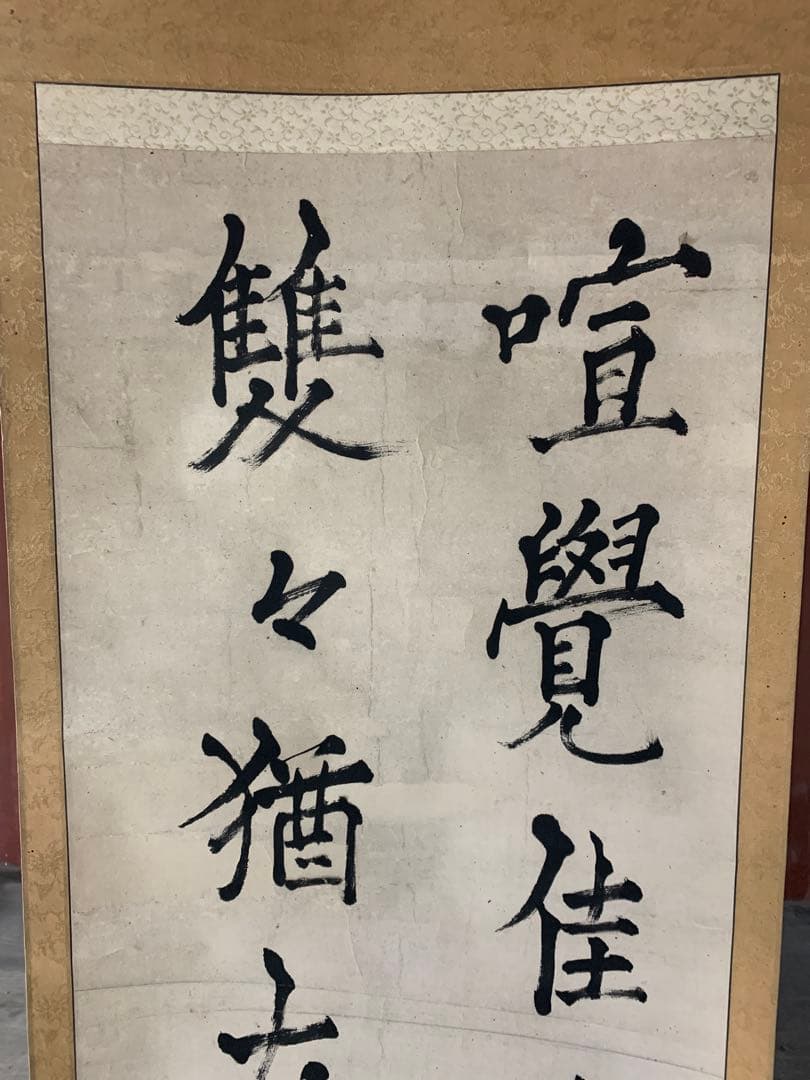 喧覺佳
雙々猶